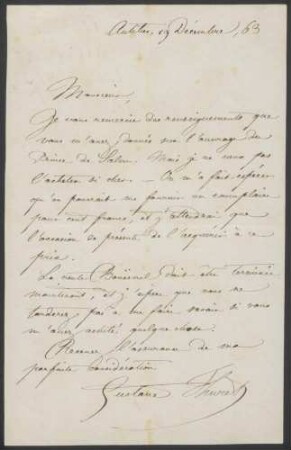 Antibes, 19 Décembre, 63
Monsieur,
Je vous remercie des renseignements que
vous m'avez donnés sur l'ouvrage du
Prince de Salm. Mais je ne veux pas
l'acheter si cher. — On m'a fait espérer
qu'on pourrait me fournir un exemplaire
pour cent francs, et j'attendrai que
l'occasion se présente de l'acquérir à ce
prix.
La vente doit être terminée
maintenant, et j'espère que vous ne
tarderez pas à me faire savoir si vous
m'avez acheté quelque chose.
Recevez l'assurance de ma
parfaite considération
Gustave Thuret